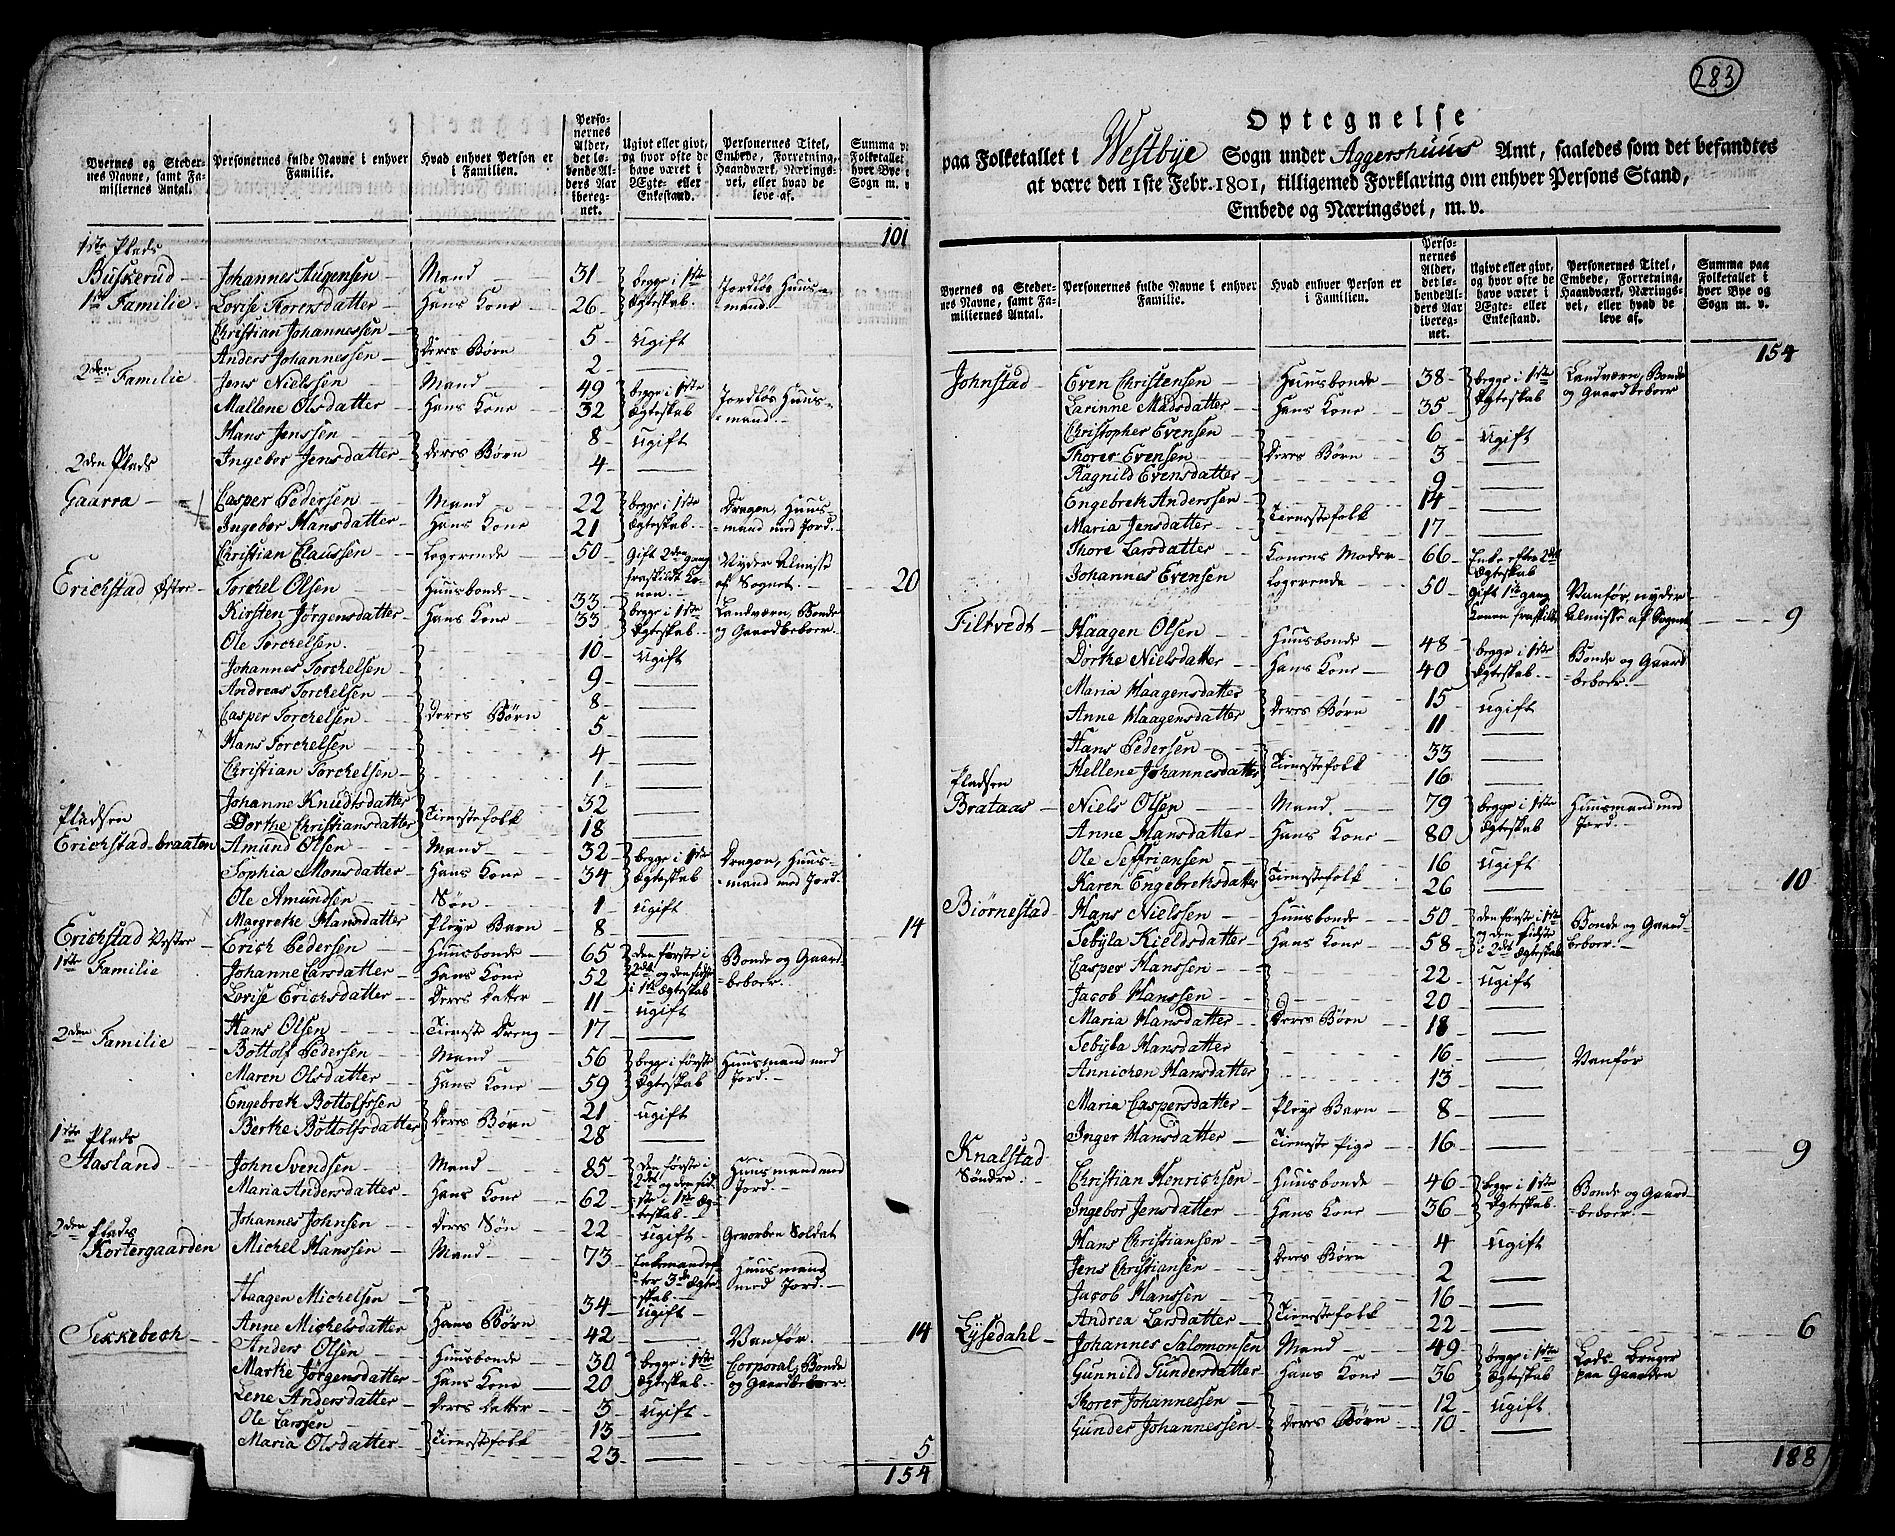 Byernes og Steder- nes Navne, samt Fa- miliernes Antal. | Personernes fulde Navne i enhver Familie. | Hvad enhver Person er i Familien. | Perso- nernes Alder, det lø- bende Al- ders Aar iberegnet. | Ugivt eller givt, og hvor ofte de have været i Ægte- eller Enkestand. | Personernes Titel, Embede, Forretning, Haandværk, Nærings- vei, eller hvad de leve af. | Summa Folketallet hver Bye Sogn m. v.
101
1ste Plads
Buskerud Johannes Augensen Mand 31 begge i 1ste Jordløs Huus-
1ste Familie Lovise Torersdatter Hans Kone 26 Ægteskab mand.
Christian Johannessen 5 ugift
Anders Johannessen Deres Børn 2
2den Familie Jens Nielssen Mand 49 begge i 1ste Jordløs Huus-
Mallene Olsdatter Hans Kone 32 Ægteskab mand.
Hans Jenssen 8 ugift
Ingebor Jensdatter Deres Børn 4
2den Plads
Gaarra Casper Pedersen Mand 22 begge i 1ste Dragon, Huus-
Ingebor Hansdatter Hans Kone 21 Ægteskab mand med Jord.
Christian Claussen Logerende 50 Gift 2den gang fraskildt Konen Nyder Almisse af Sognet. 20
Erichstad Østre Torchel Olsen Huusbonde 33 begge i 1ste Landværn, Bonde
Kirsten Jørgensdatter Hans Kone 33 Ægteskab og Gaardbeboer.
Ole Torchelsen 10 ugift
Johannes Torchelsen 9
Andreas Torchelsen 8
Casper Torchelsen Deres Børn 5
Hans Torchelsen 4
Christian Torchelsen 1
Johanne Knudtsdatter 32
Dorthe Christiansdatter Tienestefolk 18
Pladsen
Erichstad-braaten Amund Olsen Mand 32 begge i 1ste Dragon, Huus-
Sophia Monsdatter Hans Kone 34 Ægteskab mand med Jord.
Ole Amundsen Søn 1 ugift
Margrethe Hansdatter Pleye Barn 8 14
Erichstad Vestre Erich Pedersen Huusbonde 65 den første i Bonde og Gaard-
1ste Familie Johanne Larsdatter Hans Kone 52 2det og den sidste i 1ste Ægteskab beboer.
Lovise Erichsdatter Deres Datter 11 ugift
Hans Olsen Tieneste Dreng 17
2den Familie Bottolf Pedersen Mand 56 begge i første Huusmand med
Maren Olsdatter Hans Kone 59 Ægteskab Jord.
Engebrekt Bottolfssen 21 ugift
Berthe Bottolfsdatter Deres Børn 28
1ste Plads
Aasland John Svendsen Mand 85 den første i 2det og den sid- Huusmand med
Maria Andersdatter Hans Kone 62 ste i 1ste Ægteskab Jord.
Johannes Johnsen Deres Søn 22 ugift Gevorben Soldat
2den Plads
Kortergaarden Michel Hanssen Mand 73 Enkemand efter 3de Ægteskab Huusmand med Jord.
Haagen Michelsen 34 ugift
Anne Michelsdatter Hans Børn 42 Vanfør. 14
Sekkebech Anders Olsen Huusbonde 30 begge i 1ste Corporal, Bonde
Marthe Jørgensdatter Hans Kone 20 Ægteskab og Gaardbeboer.
Lene Andersdatter Deres Datter 3 ugift
Ole Larssen 13
Maria Olsdatter Tienestefolk 23 5
154
283
Optegnelse
paa Folketallet i Westbye Sogn under Aggershuus Amt, saaledes som det befandtes
at være den 1ste Febr. 1801, tilligemed Forklaring om enhver Persons Stand,
Embede og Næringsvei, m. v.
Byernes og Steder- nes Navne, samt Fa- miliernes Antal. | Personernes fulde Navne i enhver Familie. | Hvad enhver Person er i Familien. | Perso- nernes Alder, det lø- bende Al- ders Aar iberegnet. | Ugivt eller givt, og hvor ofte de have været i Ægte- eller Enkestand. | Personernes Titel, Embede, Forretning, Haandværk, Nærings- vei, eller hvad de leve af. | Summa paa Folketallet i hver Bye og Sogn m. v.
154
Johnstad Even Christensen Huusbonde 38 begge i 1ste Landværn, Bonde
Larinne Madsdatter Hans Kone 35 Ægteskab og Gaardbeboer
Christopher Evensen 6 ugift
Thorer Evensen Deres Børn 3
Ragnild Evensdatter 9
Engebrekt Anderssen 14
Maria Jensdatter Tienestefolk 17
Thore Larsdatter Konens Moder 66 Enke efter 2det Ægteskab
Johannes Evensen Logerende 50 Gift 1ste gang Konen fraskildt Vanfør, nyder Almisse af Sognet 9
Filtvedt Haagen Olsen Huusbonde 48 begge i 1ste Bonde og Gaard-
Dorthe Nielsdatter Hans Kone 40 Ægteskab beboer.
Maria Haagensdatter 15 ugift
Anne Haagensdatter Deres Børn 11
Hans Pedersen 33
Hellene Johannesdatter Tienestefolk 16
Pladsen
Brataas Niels Olsen Mand 79 begge i 1ste Huusmand med
Anne Hansdatter Hans Kone 80 Ægteskab Jord.
Ole Seffriansen 16 ugift
Karen Engebrektsdatter Tienestefolk 26 10
Biørnestad Hans Nielssen Huusbonde 50 den første i 1ste Bonde og Gaard-
Sebÿla Kieldsdatter Hans Kone 58 og den sidste i 2det Ægteskab beboer.
Casper Hanssen 22 ugift
Jacob Hanssen 20
Maria Hansdatter Deres Børn 18
Sebÿla Hansdatter 16 Vanfør
Annichen Hansdatter 13
Maria Caspersdatter Pleye Barn 8
Inger Hansdatter Tieneste Pige 16 9
Knalstad
Søndre Christian Henrichsen Huusbonde 46 begge i 1ste Bonde og Gaard-
Ingebor Jensdatter Hans Kone 36 Ægteskab beboer.
Hans Christiansen 4 ugift
Jens Christiansen Deres Børn 2
Jacob Hanssen 16
Andrea Larsdatter Tienestefolk 22 6
Lÿsedahl Johannes Salomonsen Mand 49 begge i 1ste Lods. Bruger
Gunnild Gundersdatter Hans Kone 36 Ægteskab paa Gaarden
Thorer Johannessen 12 ugift
Gunder Johannessen Deres Børn 10
188